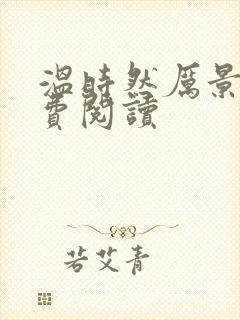 温時然厲景
費閱讀
若艾青